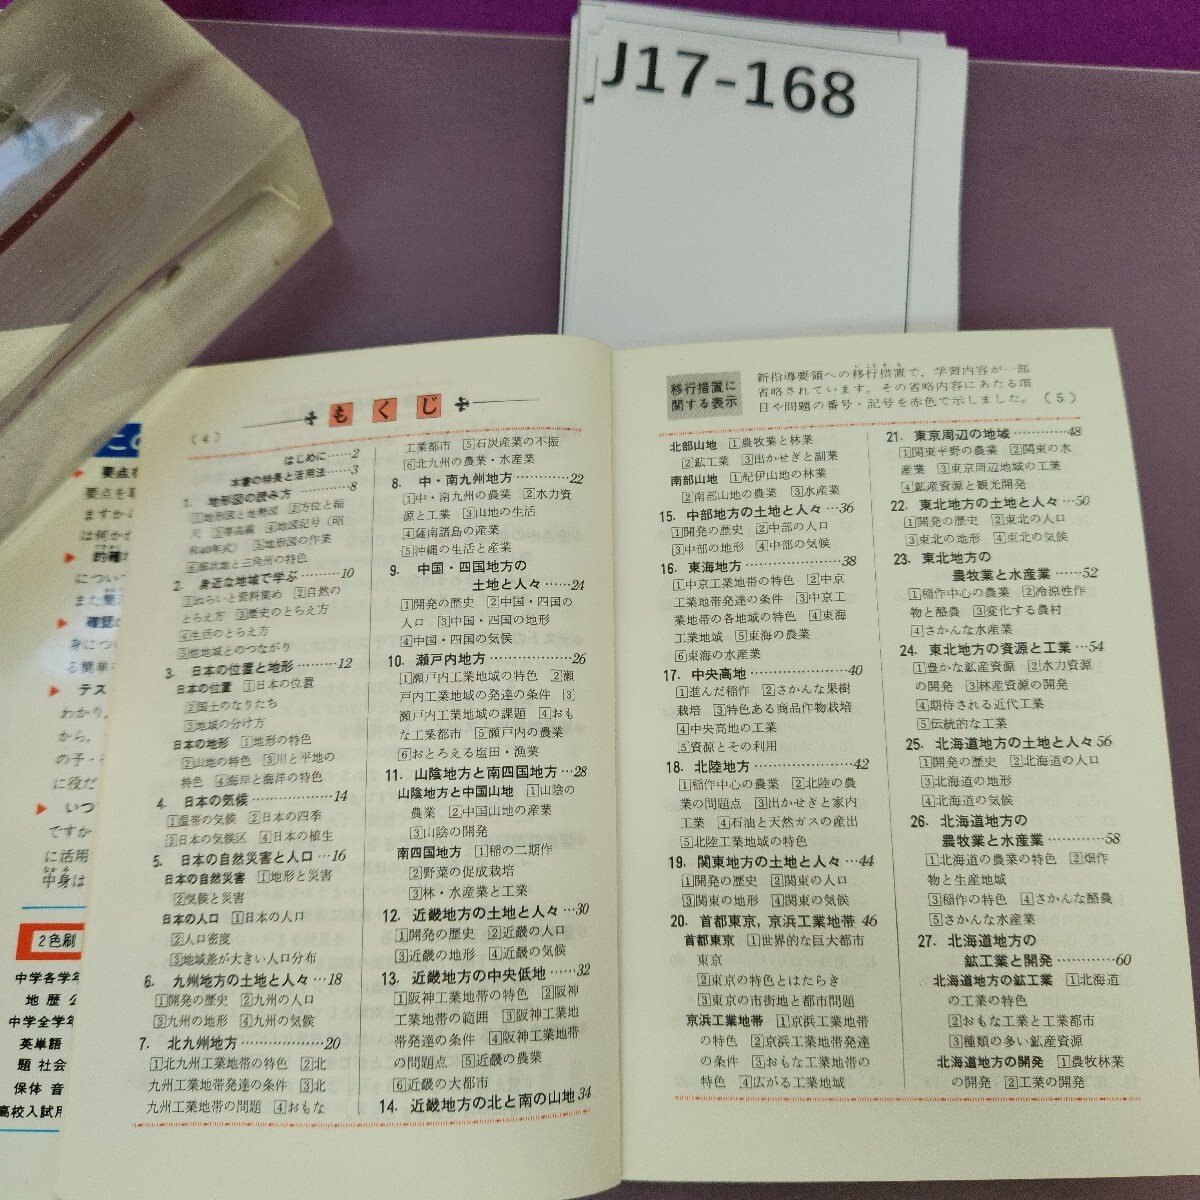 J17-168
(4)
もくじ
はじめに……2
本書の特長と活用法……3
1. 地形図の読み方………8
1地形図と地勢図 2方位と縮
尺 3等高線 4地図記号（昭
和40年式） 5地形図の作業
6扇状地と三角州の特色
2. 身近な地域で学ぶ………10
1ねらいと資料集め 2自然の
とらえ方 3歴史のとらえ方
4生活のとらえ方
5他地域とのつながり
3. 日本の位置と地形………12
日本の位置 1日本の位置
2国土のなりたち
3地域の分け方
日本の地形 1地形の特色
2山地の特色 3川と平地の
特色 4海岸と海洋の特色
4. 日本の気候………………14
1温帯の気候 2日本の四季
3日本の気候区 4日本の植生
5. 日本の自然災害と人口…16
日本の自然災害 1地形と災害
2気候と災害
日本の人口 1日本の人口
2人口密度
3地域差が大きい人口分布
6. 九州地方の土地と人々…18
1開発の歴史 2九州の人口
3九州の地形 4九州の気候
7. 北九州地方………………20
1北九州工業地帯の特色 2北
九州工業地帯発達の条件 3北
九州工業地帯の問題 4おもな
工業都市 5石炭産業の不振
6北九州の農業・水産業
8. 中・南九州地方…………22
1中・南九州の農業 2水力資
源と工業 3山地の生活
4薩南諸島の産業
5沖縄の生活と産業
9. 中国・四国地方の
土地と人々……24
1開発の歴史 2中国・四国の
人口 3中国・四国の地形
4中国・四国の気候
10. 瀬戸内地方………………26
1瀬戸内工業地域の特色 2瀬
戸内工業地域の発達の条件 3
瀬戸内工業地域の課題 4おも
な工業都市 5瀬戸内の農業
6おとろえる塩田・漁業
11. 山陰地方と南四国地方…28
山陰地方と中国山地 1山陰の
農業 2中国山地の産業
3山陰の開発
南四国地方 1稲の二期作
2野菜の促成栽培
3林・水産業と工業
12. 近畿地方の土地と人々…30
1開発の歴史 2近畿の人口
3近畿の地形 4近畿の気候
13. 近畿地方の中央低地……32
1阪神工業地帯の特色 2阪神
工業地帯の範囲 3阪神工業地
帯発達の条件 4阪神工業地帯
の問題点 5近畿の農業
6近畿の大都市
14. 近畿地方の北と南の山地34
移行措置に
関する表示
新指導要領への移行措置で，学習内容が一部
省略されています。その省略内容にあたる項
目や問題の番号・記号を赤色で示しました。（5）
北部山地 1農牧業と林業
2鉱工業 3出かせぎと副業
南部山地 1紀伊山地の林業
2南部山地の農業 3水産業
15. 中部地方の土地と人々…36
1開発の歴史 2中部の人口
3中部の地形 4中部の気候
16. 東海地方…………………38
1中京工業地帯の特色 2中京
工業地帯発達の条件 3中京工
業地帯の各地域の特色 4東海
工業地域 5東海の農業
6東海の水産業
17. 中央高地…………………40
1進んだ稲作 2さかんな果樹
栽培 3特色ある商品作物栽培
4中央高地の工業
5資源とその利用
18. 北陸地方…………………42
1稲作中心の農業 2北陸の農
業の問題点 3出かせぎと家内
工業 4石油と天然ガスの産出
5北陸工業地域の特色
19. 関東地方の土地と人々…44
1開発の歴史 2関東の人口
3関東の地形 4関東の気候
20. 首都東京，京浜工業地帯 46
首都東京 1世界的な巨大都市
東京
2東京の特色とはたらき
3東京の市街地と都市問題
京浜工業地帯 1京浜工業地帯
の特色 2京浜工業地帯発達
の条件 3おもな工業地帯の
特色 4広がる工業地域
21. 東京周辺の地域…………48
1関東平野の農業 2関東の水
産業 3東京周辺地域の工業
4鉱産資源と観光開発
22. 東北地方の土地と人々…50
1開発の歴史 2東北の人口
3東北の地形 4東北の気候
23. 東北地方の
農牧業と水産業……52
1稲作中心の農業 2冷涼性作
物と酪農 3変化する農村
4さかんな水産業
24. 東北地方の資源と工業…54
1豊かな鉱産資源 2水力資源
の開発 3林産資源の開発
4期待される近代工業
5伝統的な工業
25. 北海道地方の土地と人々 56
1開発の歴史 2北海道の人口
3北海道の地形
4北海道の気候
26. 北海道地方の
農牧業と水産業………58
1北海道の農業の特色 2畑作
物と生産地域
3稲作の特色 4さかんな酪農
5さかんな水産業
27. 北海道地方の
鉱工業と開発…………60
北海道地方の鉱工業 1北海道
の工業の特色
2おもな工業と工業都市
3種類の多い鉱産資源
北海道地方の開発 1農牧林業
の開発 2工業の開発
要点を
ますから
は何か
的確
につい
また簡
確認
身につ
る簡単
テス
わかり，
から，
の子・
に役だ
いつ
ですか
に活用
中身は
2色刷
中学各学年
地 歴 公
中学全学年
英単語
題 社会
保体 音
高校入試用